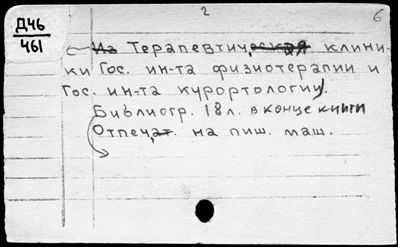 2 б
Д46
461
Из Терапевтическая клини-
ки Гос. ин-та физиотерапии и
Гос. ин-та курортологии).
Библиогр. 18 л. в конце книги
Отпечат. на пиш. маш.